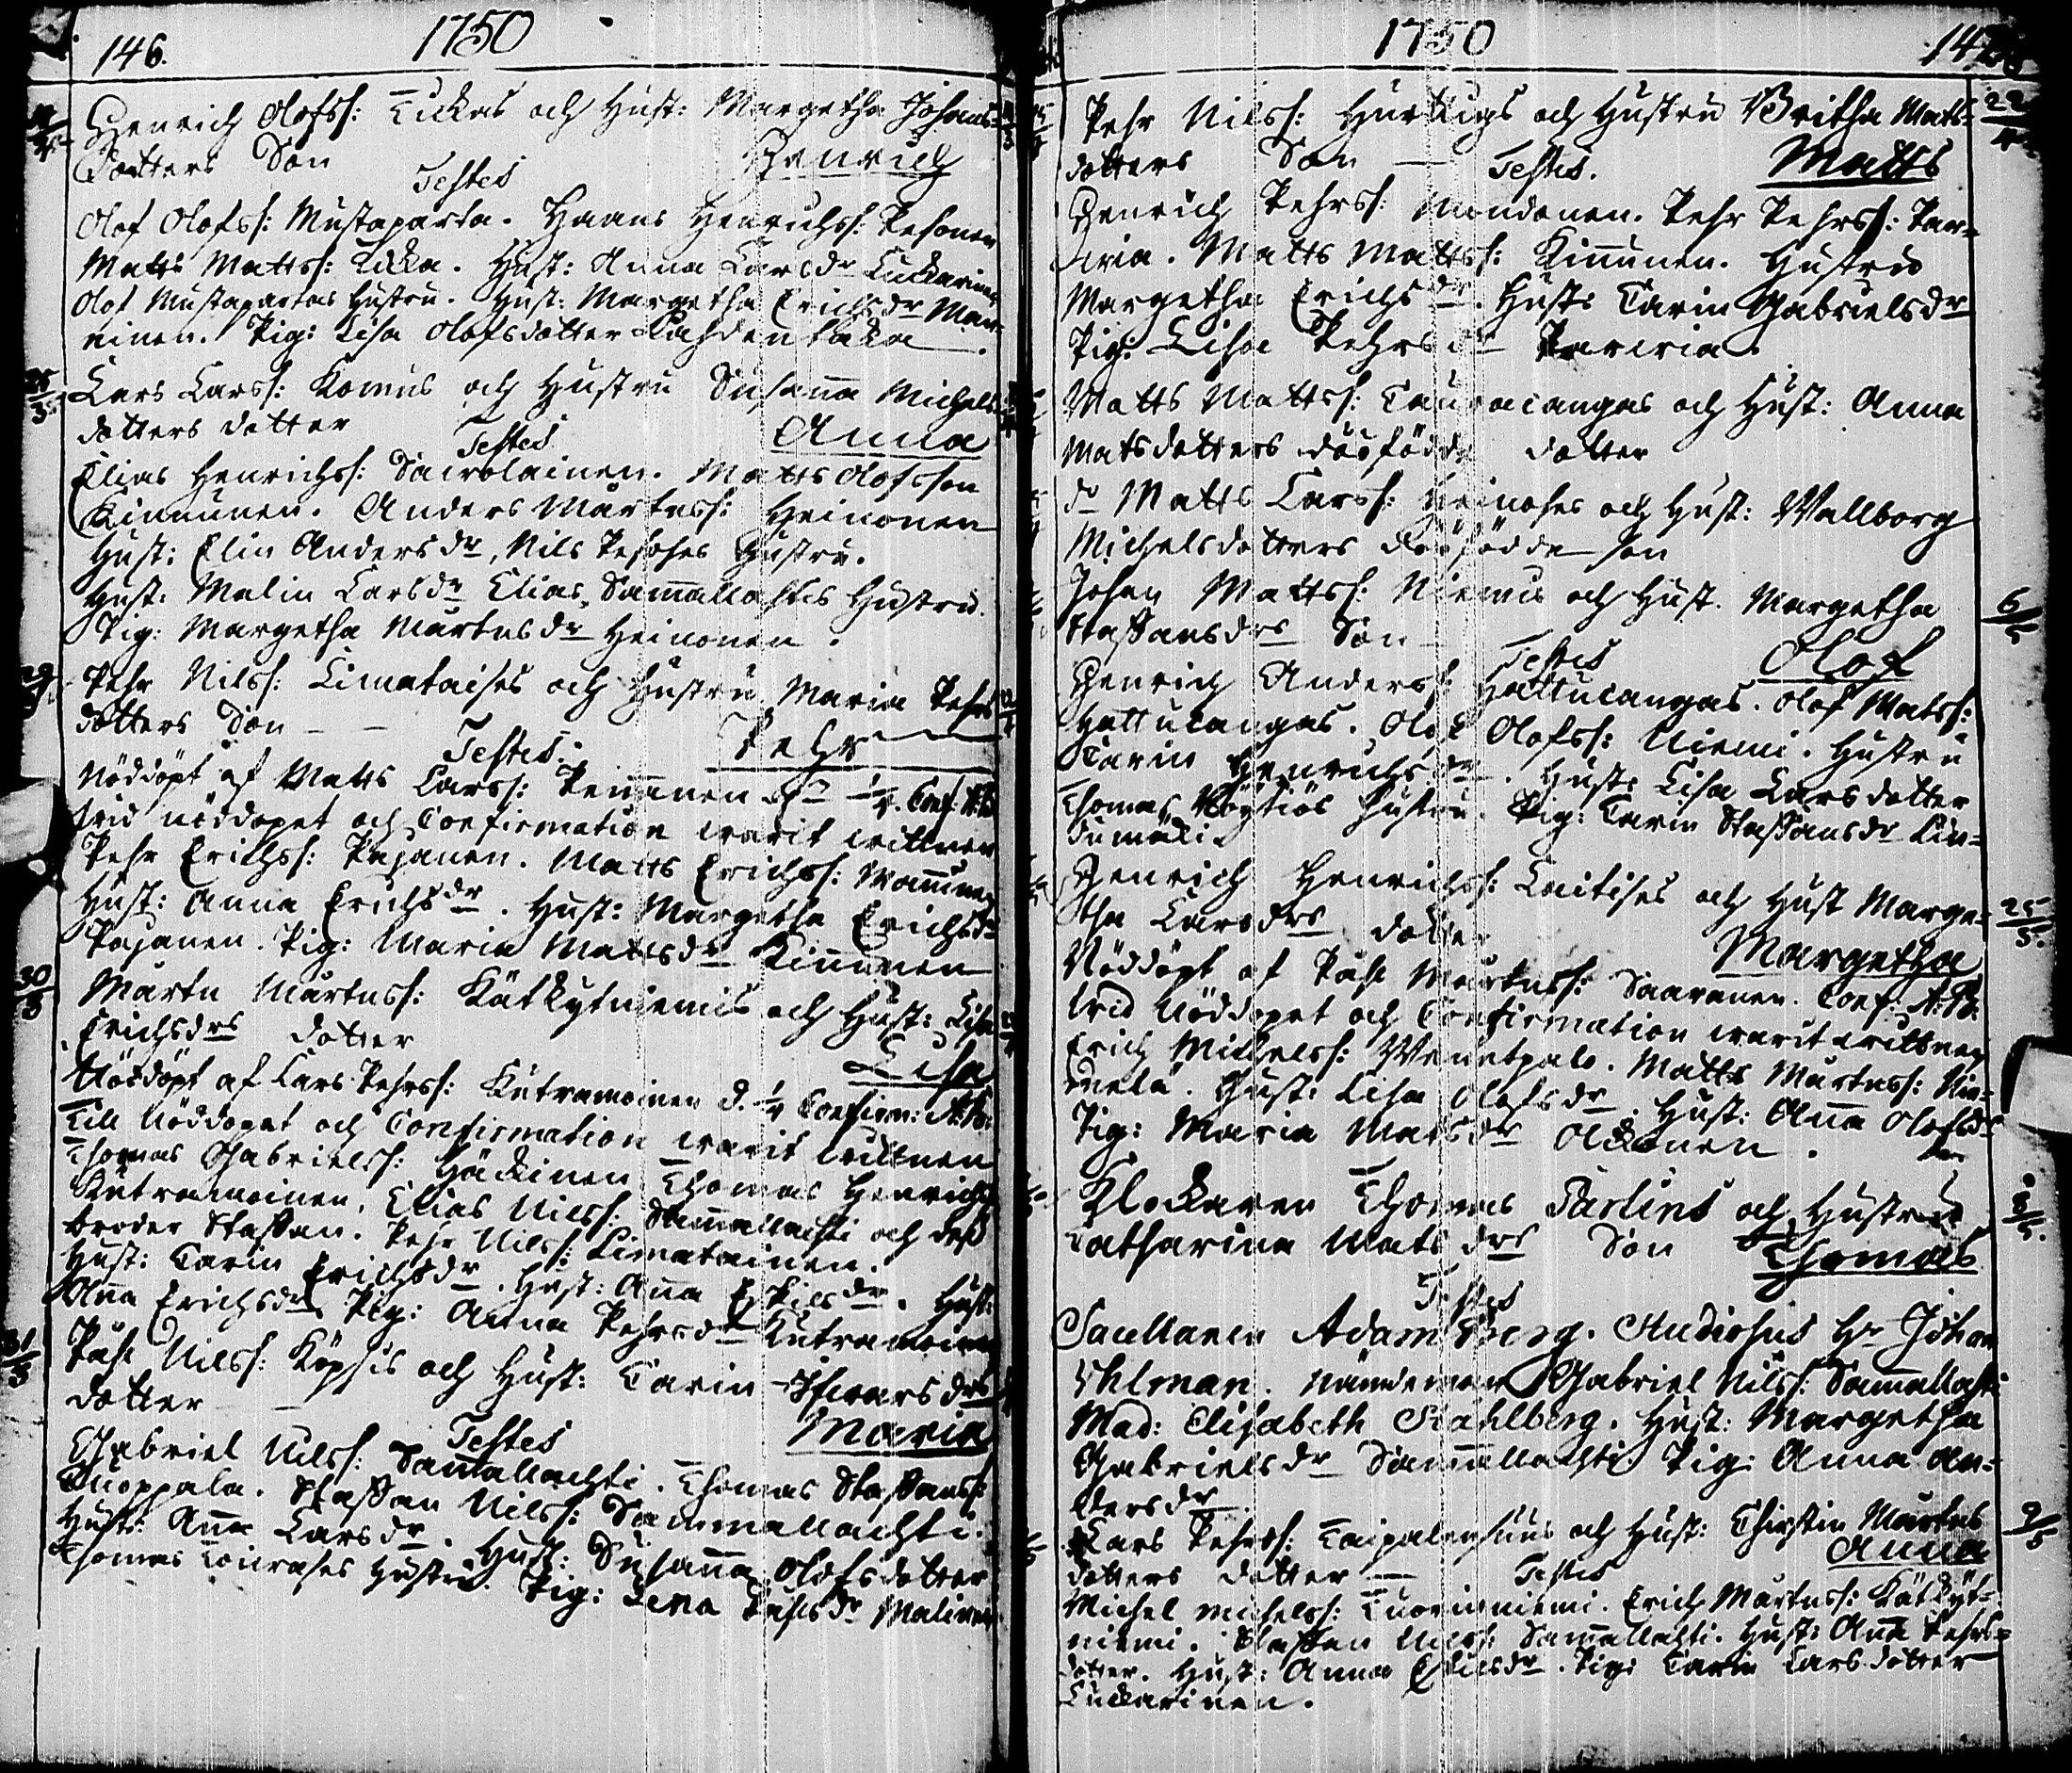 146.
1750
Henrich Olofss: Tickas och Hust: Margetha Johans=
dotters Son Henrich
Testes
Olof Olofss: Mustaparta. Haans Henrichss: Pesonen
Matts Mattss: Ticka. Hust: Anna Larsdr Luckarinen
Olof Mustapartas Hustru. Hust: Margetha Erichsdr Man=
ninen. Pig: Lisa Olofsdotter Lahdentaka
25/3
Lars Larss: Komus och Hustru Susanna Michels
dotters dotter Anna
Testes
Elias Henrichss: Sairolainen. Matts Olofsson
Kinnunen. Anders Mårtenss: Heinonen
Hust: Elin Andersdr, Nils Pesohes Hustru.
Hust: Malin Larsdr Elias Sammallachtis Hustru.
Pig: Margetha Mårtensdr Heinonen.
Pehr Nilss: Limataises och Hustru Maria Pehrs
dotters Son Pehr
Testes.
Nöddöpt af Matts Larss: Conf. A:B:
wid nöddopet och Confirmation warit wittnen
Pehr Erichss: Pajanen. Matts Erichss:
Hust: Anna Erichsdr. Hust: Margetha Erichsdr
Pajanen. Pig: Maria Mattsdr Kinnunen
30/3
Mårten Mårtenss: Kätkytniemis och Hust: Lisa
Erichsdrs dotter Lisa
Nöddöpt af Lars Pehrss: Kutramoinen d. 1/4 Confirm: A:B:
Till Nöddopet och Confirmation warit wittnen
Thomas Gabrielss: Häckinen Thomas Henrichs
Kutramoinen, Elias Nilss: Sammallachti och dess
broder Staffan. Pehr Nilss: Limatainen.
Hust: Carin Erichsdr. Hust: Anna Eskilsdr. Hust:
Anna Erichsdr Pig: Anna Pehrsdr Kutramoinen
31/3
Påhl Nilss: Köpsis och Hust: Carin Ifwarsdrs
dotter Maria
Testes
Gabriel Nilss: Sammallachti. Thomas Staffanss:
Cuoppala. Staffan Nilss: Sammallachti.
Hust: Anna Larsdr. Hust: Susanna Olofsdotter
Thomas Hustru. Pig: Lena Påhlsdr Malinen
1750
Pehr Nilss: Hurskus och Hustru Britha Mats=
dotters Son Matts
22/4
Testes.
Henrich Pehrss: Mondonen. Pehr Pehrss: Par=
wia. Matts Mattss: Kinnunen. Hustru
Margetha Erichsdr. Hust: Carin Gabrielsdr
Pig: Lisa Pehrsdr Parwia.
Matts Mattss: och Hust: Anna
Matsdotters dödfödde dotter
dr Matts Larss: Heinohes och Hust: Wallborg
Michelsdotters dödfödde son
Johan Mattss: Niemis och Hust. Margetha
Staffansdrs Son Olof
Testes
Henrich Anderss: Hattucangas. Olof Matss:
Hattucangas. Olof Olofss: Niemi. Hustru
Carin Henrichsdr. Hust: Lisa Larsdotter
Thomas Hustru. Pig: Carin Staffansdr Lin=
dumäki.
Henrich Henrichss: Laitises och Hust Marge=
tha Larsdrs dotter Margetha
25/5.
Nöddöpt af Påhl Mårtenss: Saaranen. Conf: A:B:
wid Nöddopet och Confirmation warit wittnen
Erich Michelss: Wenetpalo. Matts Mårtenss: Nie=
melä. Hust: Lisa Olofsdr. Hust: Anna Olofsdr
Pig: Maria Matsdr Ockonen.
Klockaren Thomas Parlins och Hustru
Catharina Matsdrs Son Thomas
Testes
Caellanen Adam Berg. Studiosus Hr Johan
Uhlman. Nämdeman Gabriel Nilss: Sammallachti
Mad: Elisabeth Stahlberg. Hust: Margetha
Gabrielsdr Sammallachti. Pig: Anna An=
dersdr
Lars Pehrss: och Hust: Christin Mårtens
dotters dotter Anna
9/5
Testes
Michel Michelss: Erich Mårtenss: Kätkyt=
niemi. Staffan Nilss: Sammallachti. Hust: Anna Pehrs=
dotter. Hust: Anna Eskilsdr. Pig: Carin Larsdotter
Luckarinen.